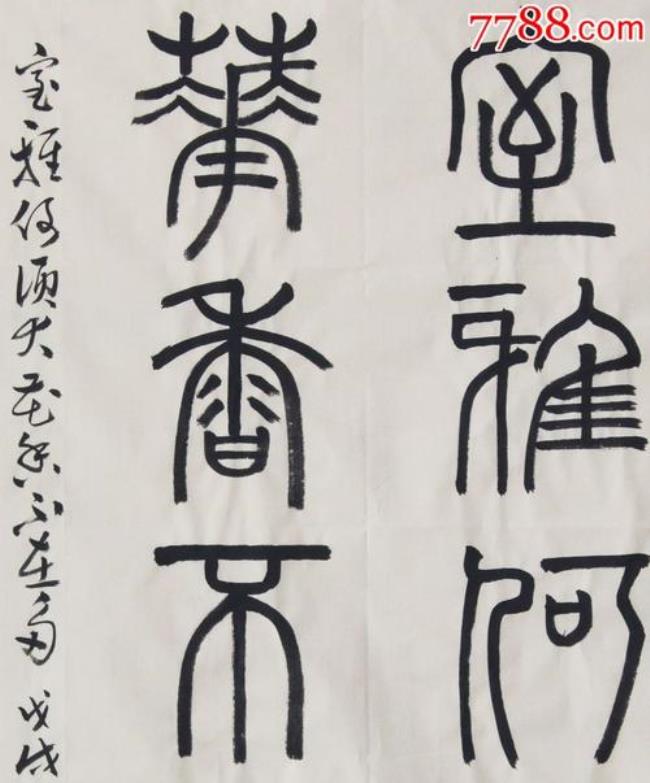 7788.com
室雅何
華香不
室雅何須大花香不在多 戊戌